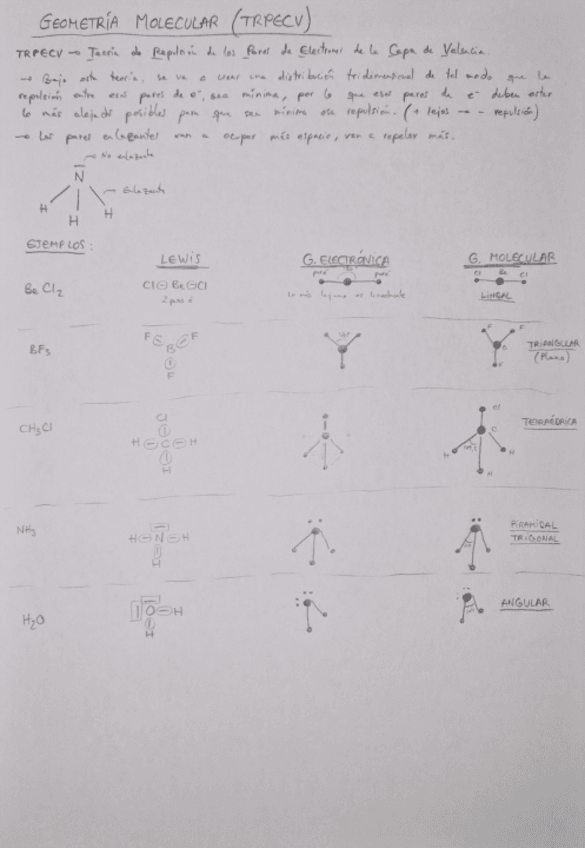 GEOMETRÍA MOLECULAR (TRPECV)
TRPECV → Teoría de Repulsión de los Pares de Electrones de la Capa de Valencia
→ Bajo esta teoría, se va a crear una distribución tridimensional de tal modo que la
repulsión entre esos pares de e⁻, sea mínima, por lo que esos pares de e⁻ deben estar
lo más alejados posibles para que sea mínima esa repulsión. (+ lejos → - repulsión)
→ Los pares enlazantes van a ocupar más espacio, van a repeler más.
No enlazante
N
Enlazante
H H H
EJEMPLOS:
LEWIS G. ELECTRÓNICA G. MOLECULAR
BeCl2 Cl Be Cl Cl Be Cl
2 pares LINEAL
BF3 F F B F F F B F TRIANGULAR
(Plana)
CH3Cl Cl H C H H Cl C H H H TETRAÉDRICA
NH3 H N H H PIRAMIDAL
TRIGONAL
H2O O H H ANGULAR